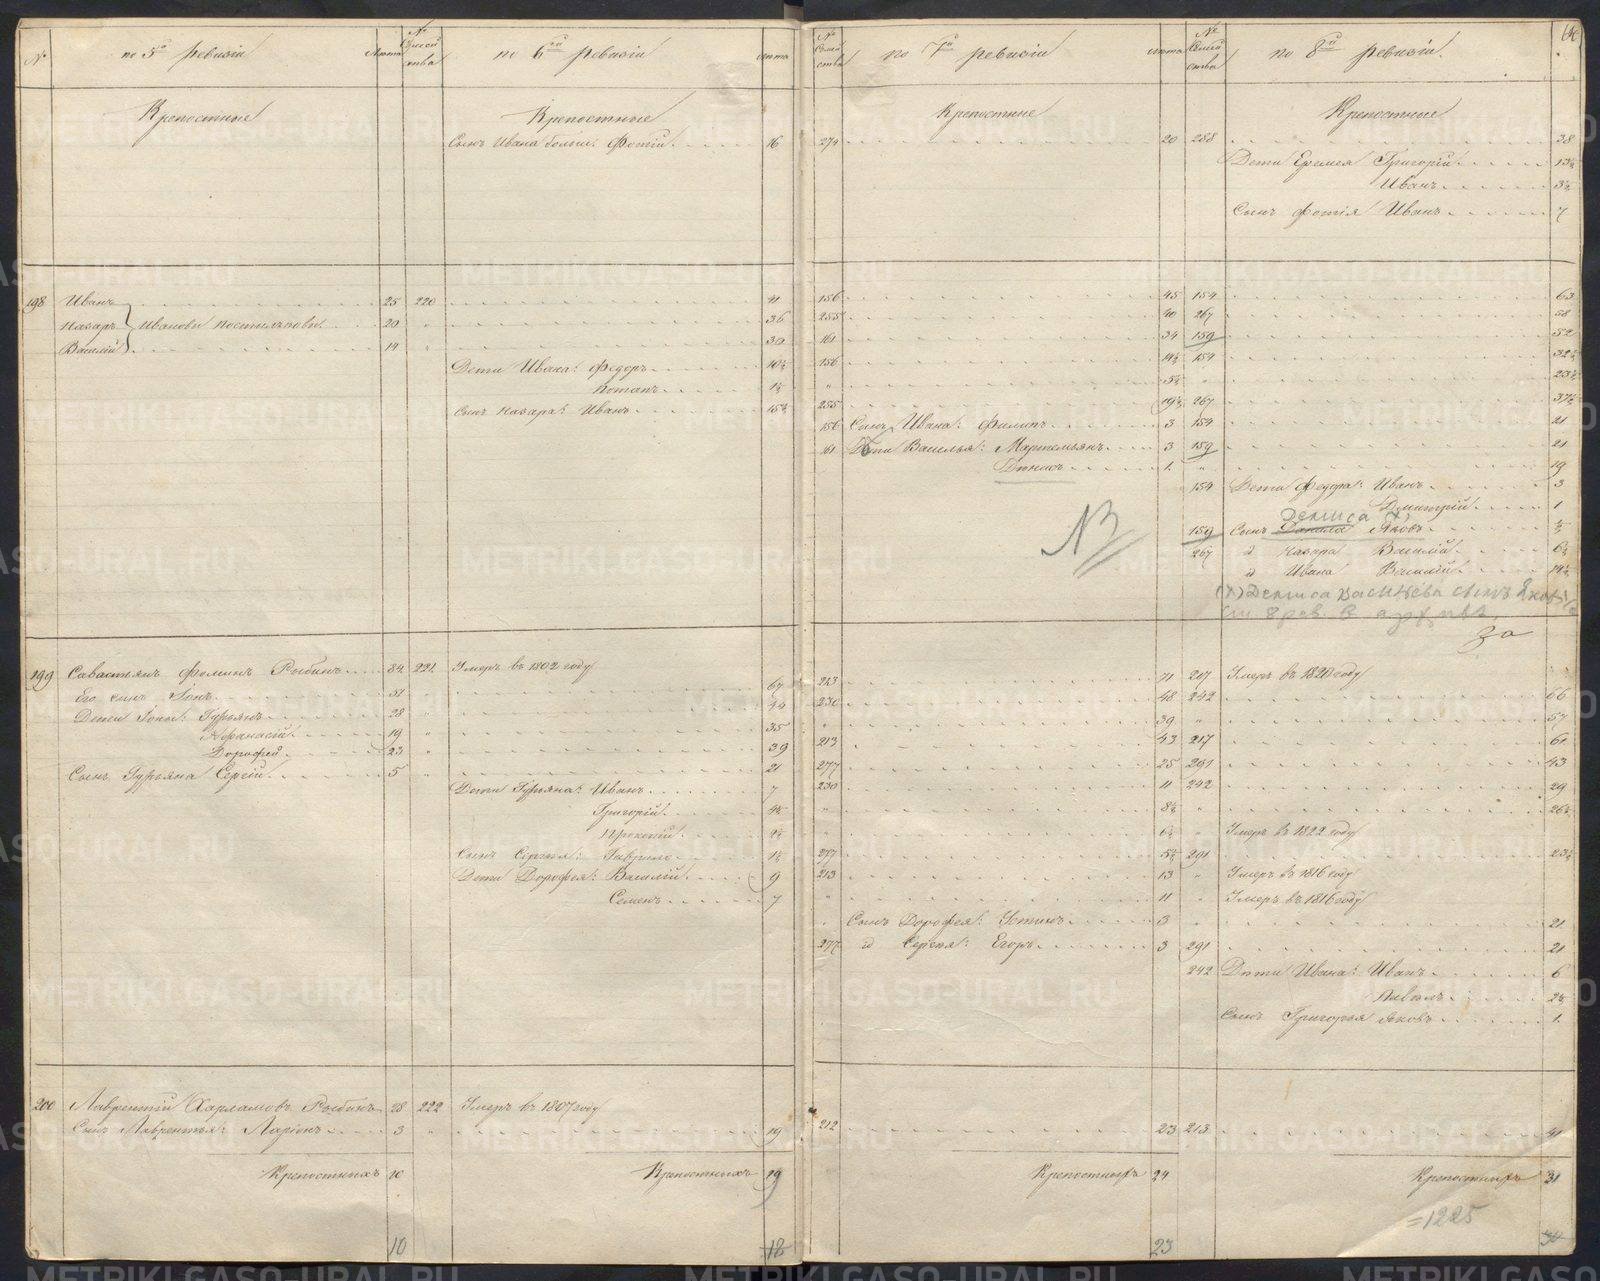 № по 5й ревизіи Лѣта № Семейства по 6й ревизіи Лѣта № Семейства по 7й ревизіи Лѣта № Семейства по 8й ревизіи
Крѣпостные Крѣпостные Крѣпостные Крѣпостные
Сынъ Ивана больш: Фотій 16 274 20 288 38
Дети Еремея Григорій 13½
Иванъ 3½
Сынъ Фотія Иванъ 7
198 Иванъ 25 220 41 156 45 154 63
Назаръ Ивановы 20 " 36 255 40 267 58
Василій 14 " 30 161 34 159 52
Дети Ивана: Федоръ 10½ 156 14½ 154 32½
Потапъ 1½ " 5½ " 23½
Сынъ Назара: Иванъ 15½ 255 19½ 267 37½
156 Сынъ Ивана: Филипъ 3 154 21
161 Дети Василья: Мартемьянъ 3 159 21
Денисъ 1 " 19
154 Дети Федора: Иванъ 3
Дмитрій 1
Дениса (х)
159 Сынъ Данила Яковъ ½
267 д Назара Василій 6½
д Ивана Василій 14½
(х) Дениса Васильева сынъ Яковъ ½
см 8 рев. в архивѣ
199 Савастьянъ Фоминъ Рыбинъ 84 221 Умеръ въ 1802 году 213 71 217 Умеръ въ 1820 году
Его сынъ Іонъ 51 67 230 48 242 66
Дети Іоны: Гурьянъ 28 " 44 " 39 " 57
Афанасій 19 " 35 213 43 217 61
Дорофей 23 " 39 277 25 291 43
Сынъ Гурьяна Сергій 5 " 21 230 11 242 29
Дети Гурьяна: Иванъ 7 " 8½ " 26½
Григорій 4½ " 6½ " Умеръ въ 1822 году
Прокопій 2½
Сынъ Сергія: Гаврило 1½ 277 5½ 291 23½
Дети Дорофея: Василій 9 213 13 " Умеръ въ 1816 году
Семенъ 7 " 11 " Умеръ въ 1816 году
" Сынъ Дорофея: Устинъ 3 " 21
277 д Сергія: Егоръ 3 291 21
242 Дети Ивана: Иванъ 6
Павелъ 2½
Сынъ Григорья Яковъ 1
200 Лаврентій Харламовъ Рыбинъ 28 222 Умеръ въ 1807 году
Сынъ Лаврентья: Ларіонъ 3 " 19 212 23 213 41
Крѣпостныхъ 10 Крѣпостныхъ 19 Крѣпостныхъ 24 Крѣпостныхъ 31
=1225
10 18 23 30
METRIKI.GASO-URAL.RU